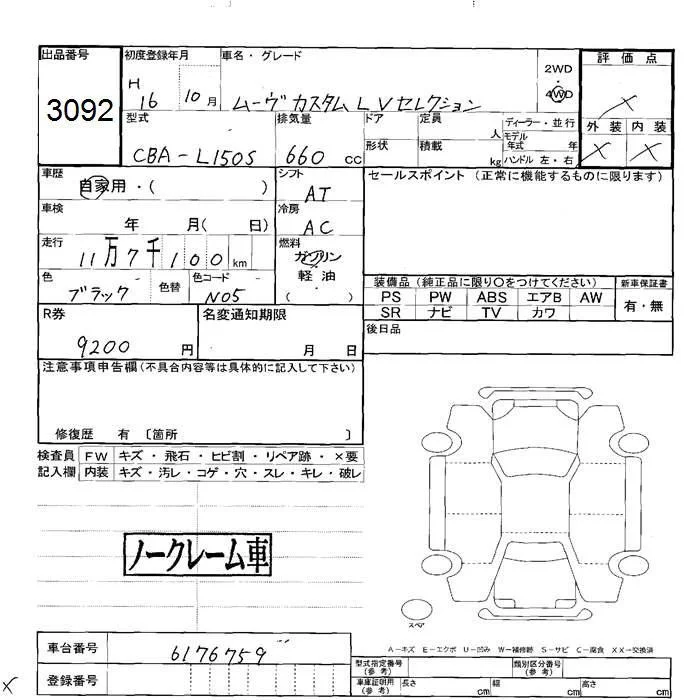 出品番号 初度登録年月 車名・グレード 評価点
3092 H 16 10月 ムーヴカスタム L Vセレクション 2WD 4WD ×
型式 排気量 ドア 定員 人 ディーラー・並行 外装 内装
CBA-L150S 660cc 形状 積載 kg モデル年式 年 ハンドル 左・右 × ×
車歴 自家用・( ) シフト AT セールスポイント (正常に機能するものに限ります)
車検 年 月( 日) 冷房 AC
走行 11万7千100km 燃料 ガソリン 軽油 ( )
色 ブラック 色替 色コード N05 装備品 (純正品に限り○をつけてください) 新車保証書
PS PW ABS エアB AW 有・無
SR ナビ TV カワ
R券 9200円 名変通知期限 月 日 後日品
注意事項申告欄 (不具合内容等は具体的に記入して下さい)
修復歴 有 〔箇所 〕
検査員 FW キズ・飛石・ヒビ割・リペア跡・×要
記入欄 内装 キズ・汚レ・コゲ・穴・スレ・キレ・破レ
ノークレーム車
スペア
A-キズ E-エクボ U-凹み W-補修跡 S-サビ C-腐食 XX-交換済
車台番号 6176759 型式指定番号 (参考) 類別区分番号 (参考)
登録番号 車庫証明用 (参考) 長さ cm 幅 cm 高さ cm
×